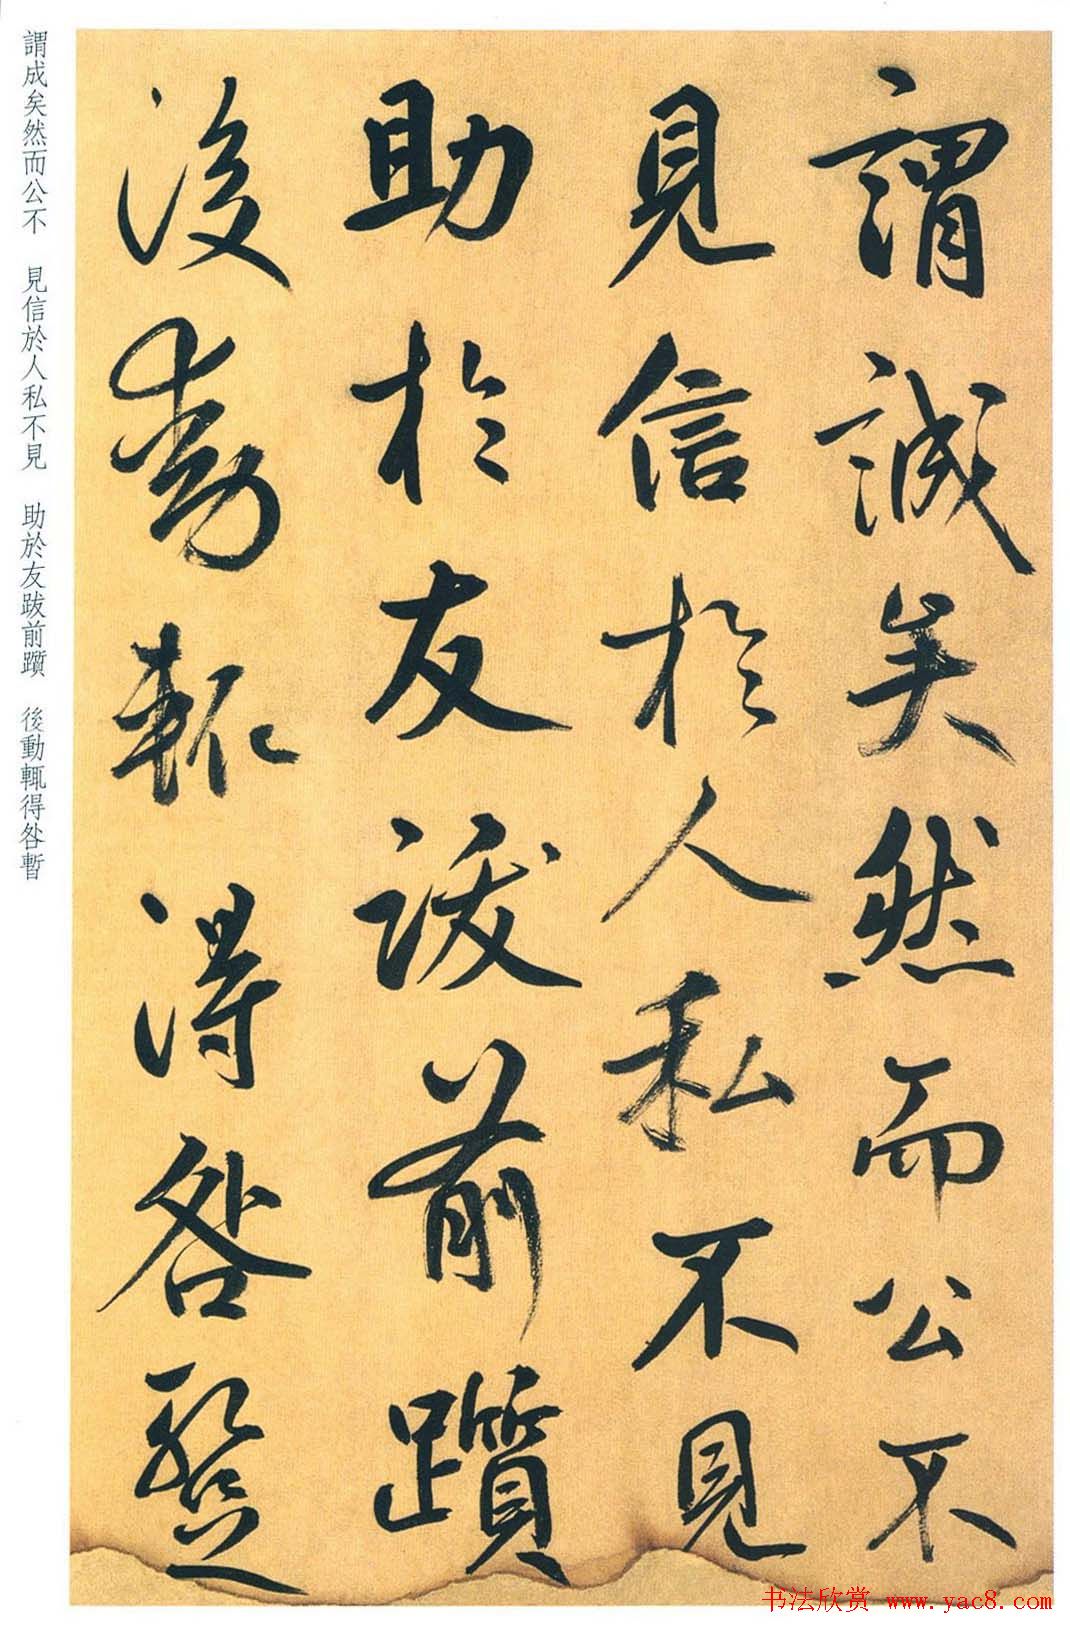 謂誠矣然而公不
見信於人私不見
助於友跋前躓
後動輒得咎暫
謂成矣然而公不　見信於人私不見　助於友跋前躓　後動輒得咎暫
书法欣赏 www.yac8.com